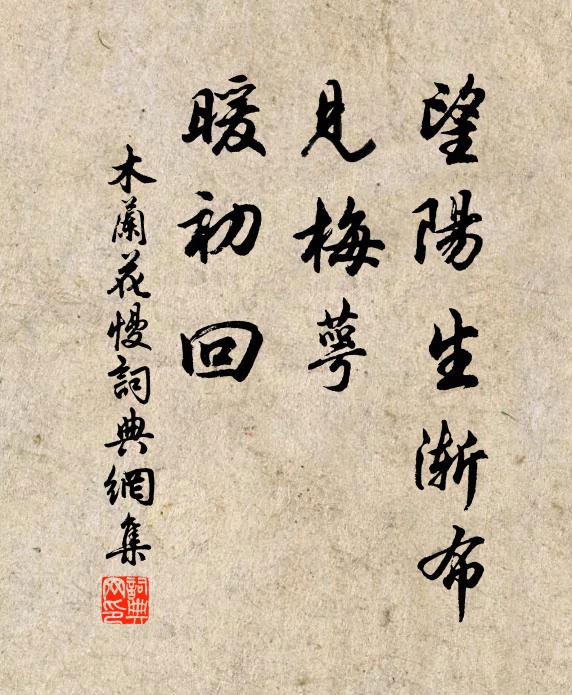 望陽生漸布
見梅萼
暖初回
木蘭花慢詞典網集
詞典
网印